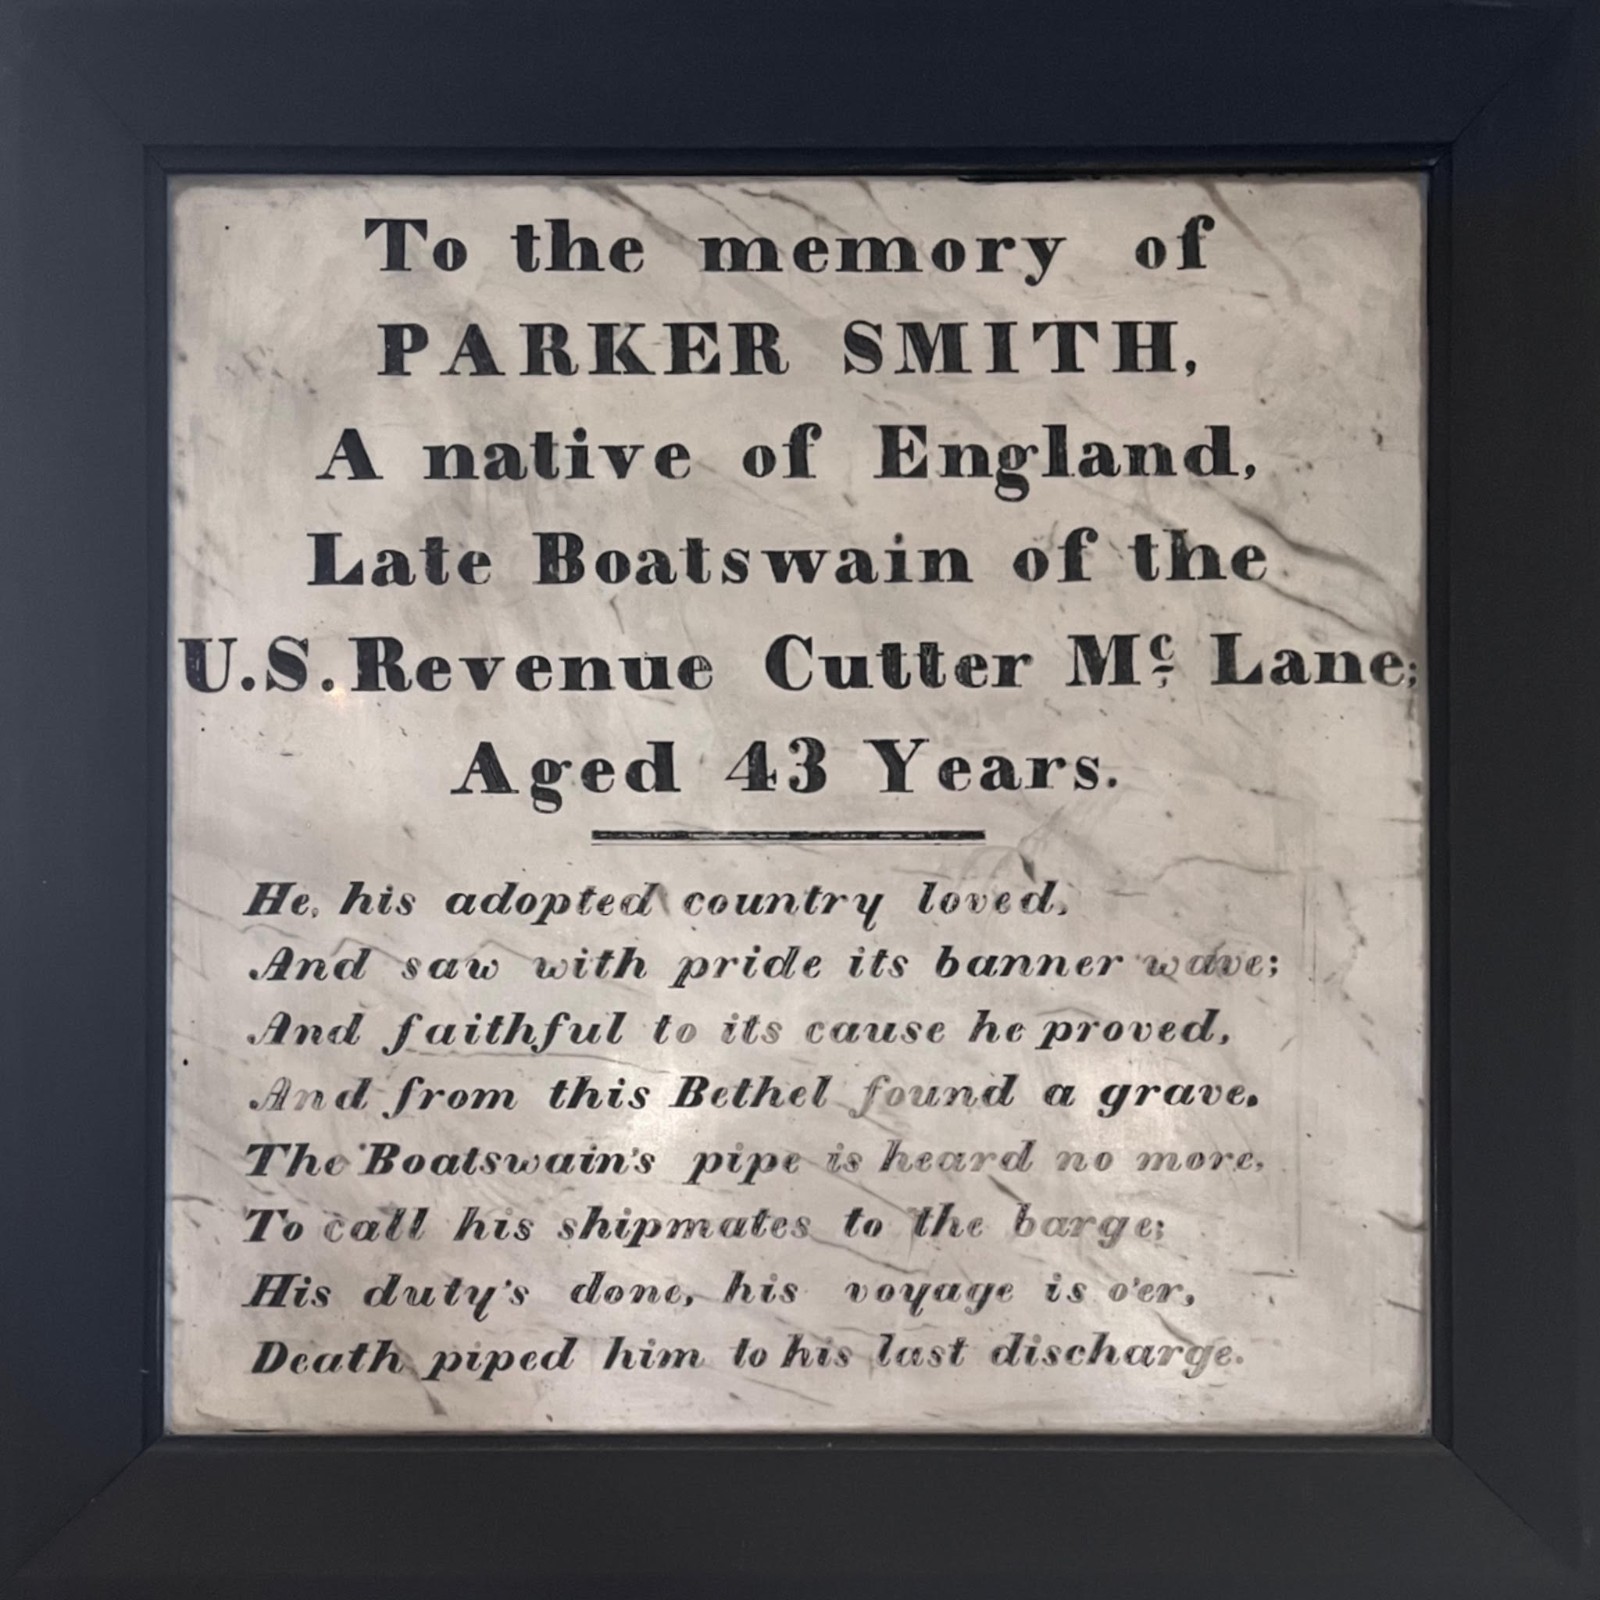 To the memory of
PARKER SMITH,
A native of England,
Late Boatswain of the
U.S. Revenue Cutter Mc Lane;
Aged 43 Years.
He, his adopted country loved,
And saw with pride its banner wave;
And faithful to its cause he proved,
And from this Bethel found a grave.
The Boatswain's pipe is heard no more,
To call his shipmates to the barge;
His duty's done, his voyage is o'er,
Death piped him to his last discharge.